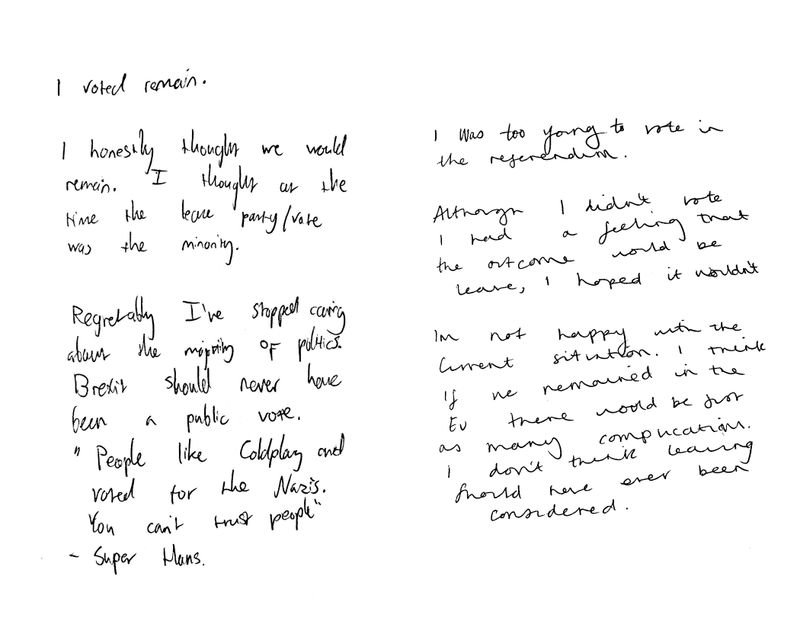 I voted remain.
I honestly thought we would
remain. I thought at the
time the leave party/vote
was the minority.
Regretably I've stopped caring
about the majority of politics.
Brexit should never have
been a public vote.
"People like Coldplay and
voted for the Nazis.
You can't trust people"
- Super Hans.
I was too young to vote in
the referendum.
Although I didn't vote
I had a feeling that
the outcome would be
leave, I hoped it wouldn't
Im not happy with the
current situation. I think
if we remained in the
EU there would be just
as many complication.
I don't think leaving
should have ever been
considered.